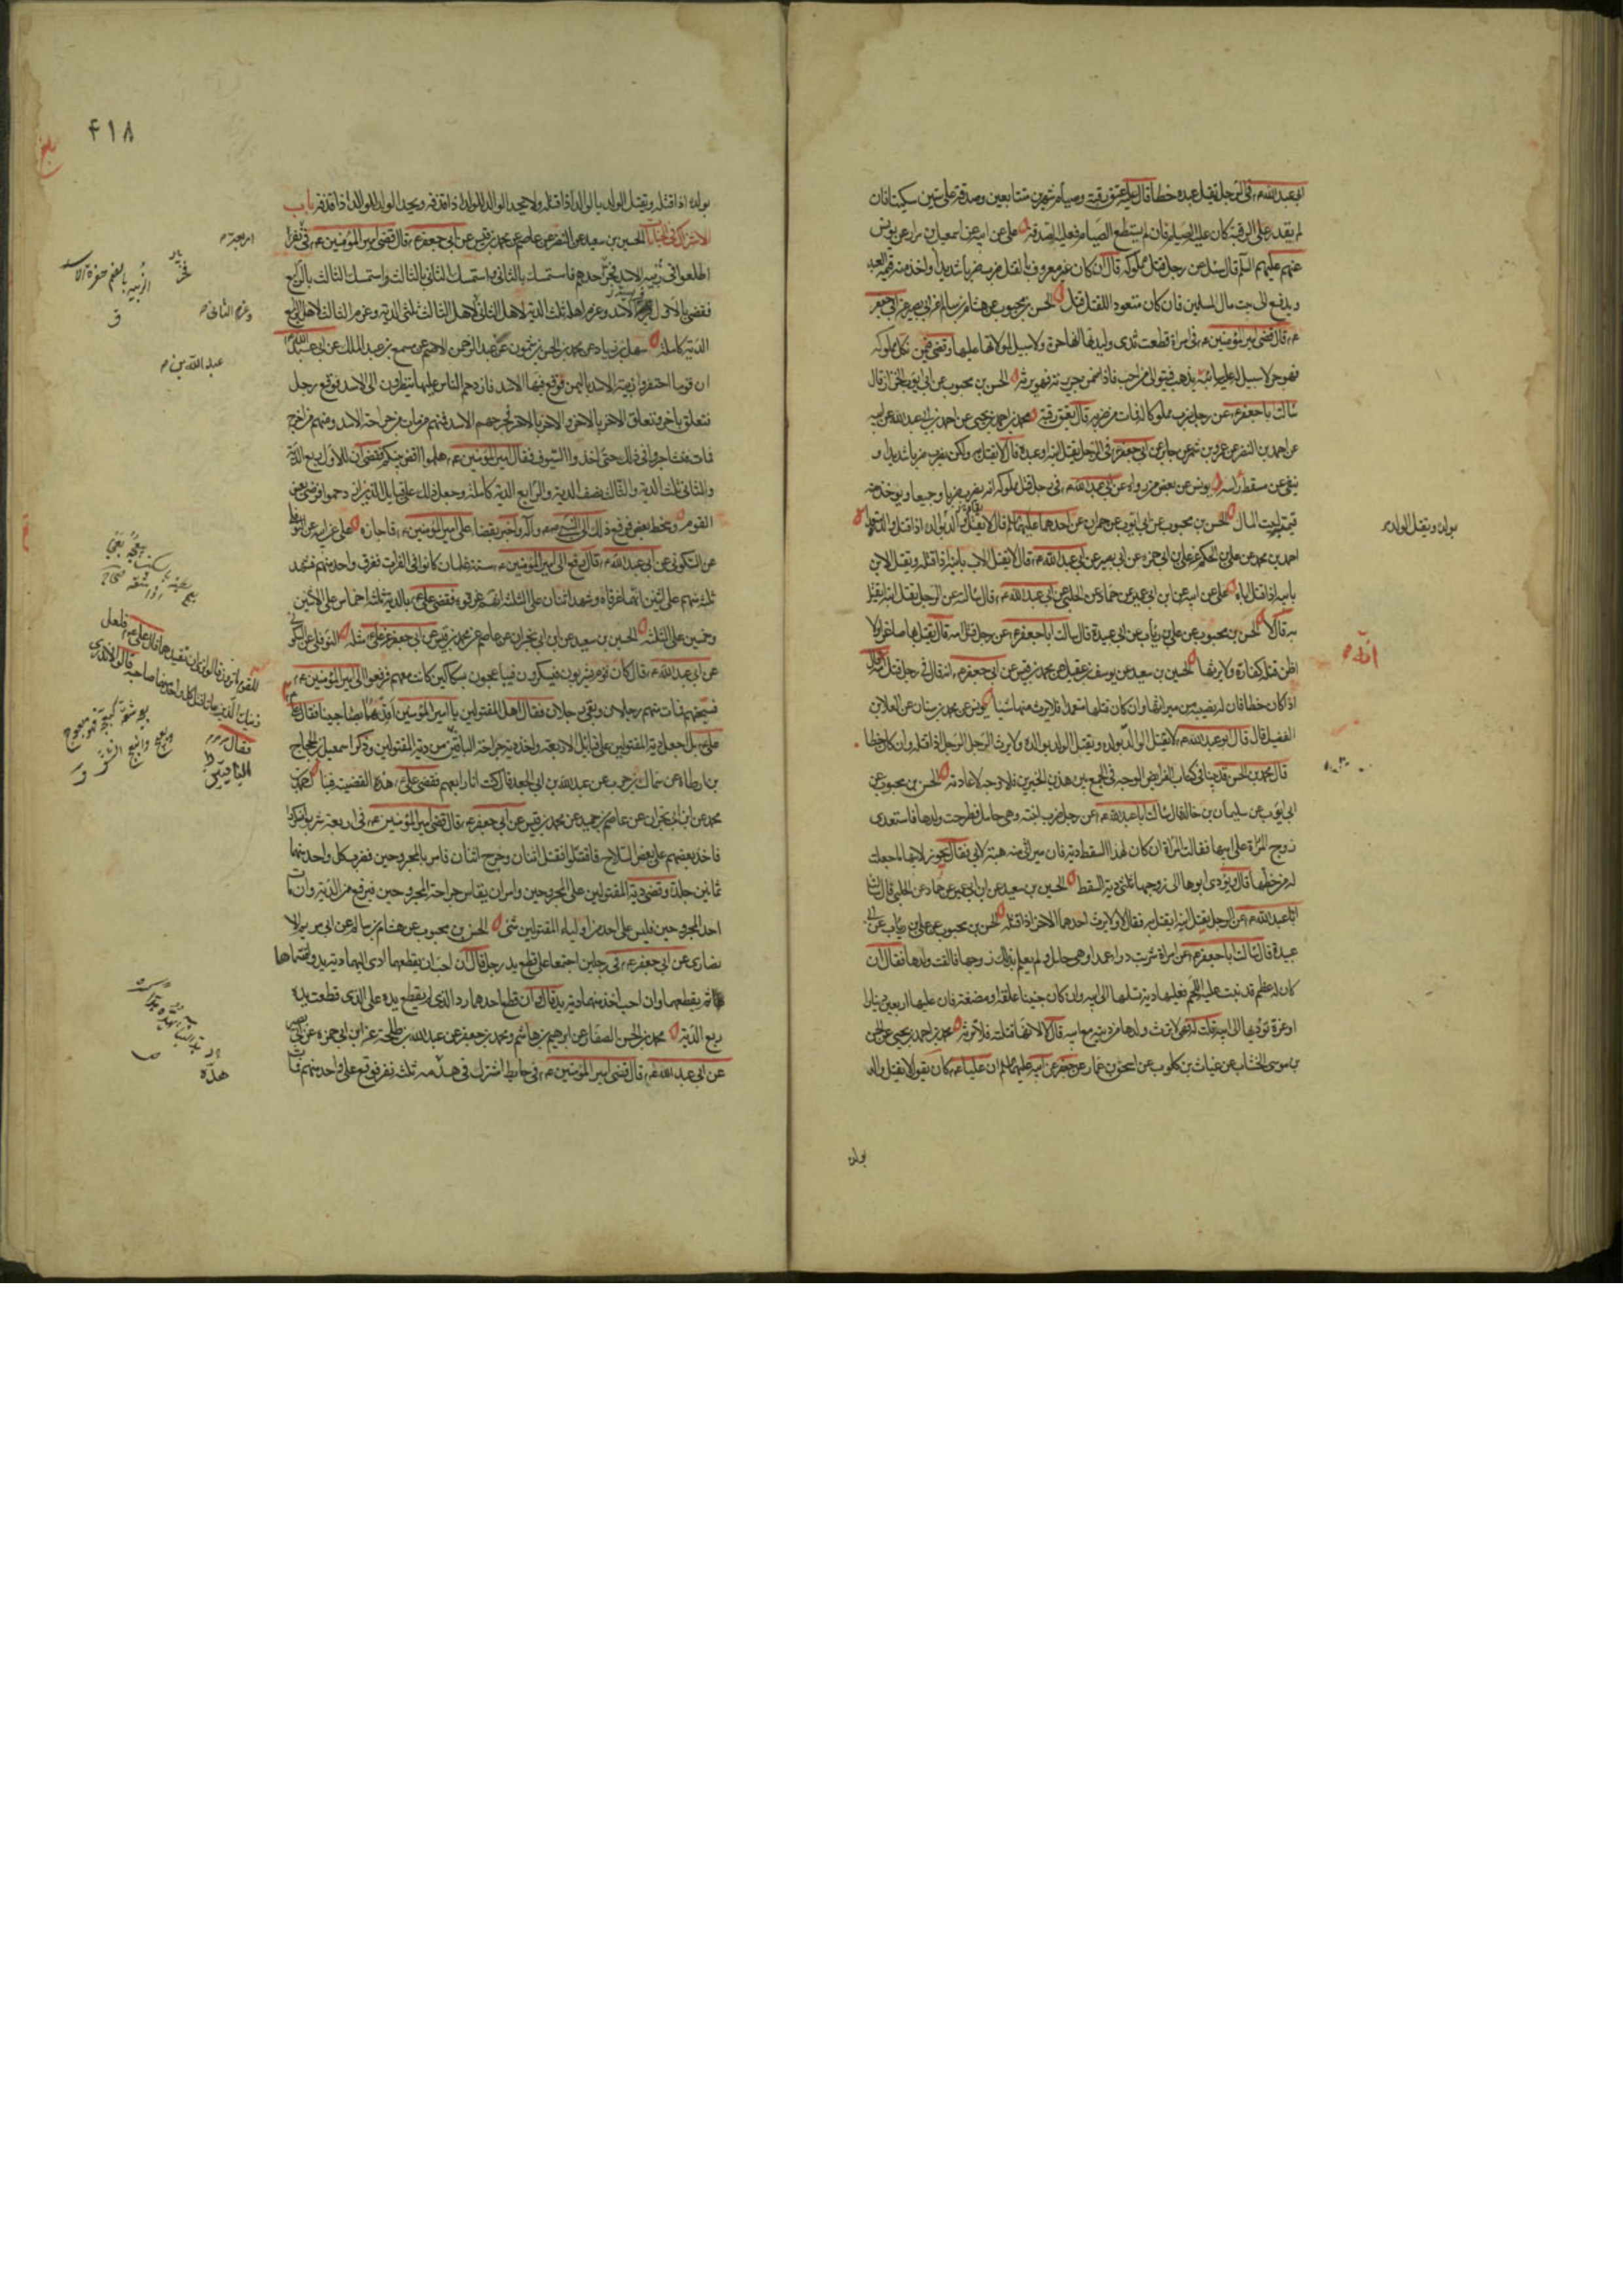 ابي عبد الله ع في الرجل يقتل عبده خطأ قال عليه عتق رقبة وصيام شهرين متتابعين وصدقة على ستين مسكينا فان
لم يقدر على الرقبة كان عليه الصيام فان لم يستطع الصيام فعليه الصدقة علي عن ابيه عن اسمعيل بن مرار عن يونس
عنهم عليهم السلم قال سئل عن رجل قتل مملوكه قال ان كان غير معروف بالقتل ضرب ضربا شديدا واخذ منه قيمة العبد
ويدفع الى بيت مال المسلمين فان كان متعود اللقتل قتل الحسن بن محبوب عن هشام بن سالم عن ابي بصير عن ابي جعفر
ع قال قضى امير المؤمنين ع في امراة قطعت ثدى وليدتها انها حرة ولا سبيل لمولاتها عليها وقضى فيمن نكل بمملوكه
فهو حر لا سبيل له عليه سائبة يذهب فيتولى من احب فاذا ضمن جريرته فهو يرثه الحسن بن محبوب عن ابي ايوب الخزاز قال
سالت ابا جعفر ع عن رجل ضرب مملوكا له فمات من ضربه قال يعتق رقبة محمد بن احمد بن يحيى عن احمد بن ابي عبد الله عن ابيه
عن احمد بن النضر عن عمرو بن شمر عن جابر عن ابي جعفر ع في الرجل يقتل ابنه او عبده قال لا يقتل به ولكن يضرب ضربا شديدا و
ينفى عن مسقط راسه يونس عن بعض من رواه عن ابي عبد الله ع في رجل قتل مملوكه انه يضرب ضربا وجيعا ويؤخذ منه
قيمته لبيت المال الحسن بن محبوب عن ابي ايوب عن حمران عن احدهما عليهما السلم قال لا يقاد والد بولده اذا قتله
احمد بن محمد عن علي بن الحكم عن علي بن ابي حمزه عن ابي بصير عن ابي عبد الله ع قال لا يقتل الاب بابنه اذا قتله ويقتل الابن
بابيه اذا قتل اباه علي عن ابيه عن ابن ابي عمير عن حماد عن الحلبي عن ابي عبد الله ع قال سالته عن الرجل يقتل ابنه ايقتل
به قال لا الحسن بن محبوب عن علي بن رئاب عن ابي عبيدة قال سالت ابا جعفر ع عن رجل قتل امه قال يقتل بها صاغرا ولا
اظن قتله كفارة ولا يرثها الحسين بن سعيد عن يوسف بن عقيل عن محمد بن قيس عن ابي جعفر ع انه قال في رجل قتل امه قال
اذا كان خطا فان له نصيبه من ميراثها وان كان قتلها متعمدا فلا يرث منها شيئا يونس عن محمد بن سنان عن العلا بن
الفضيل قال قال ابو عبد الله ع لا يقتل الوالد بولده ويقتل الولد بوالده ولا يرث الرجل الرجل اذا قتله وان كان خطا
قال محمد بن الحسن قد بينا في كتاب الفرايض الوجه في الجمع بين هذين الخبرين فلا وجه لاعادته الحسن بن محبوب عن
ابي ايوب عن سليمان بن خالد قال سالت ابا عبد الله ع عن رجل ضرب ابنته وهي حامل فطرحت ولدها فاستعدى
زوج المراة على ابيها فقالت المراة ان كان لهذا السقط دية فان ميراثي منه هبة لابي فقال يجوز لابيها ما جعلت
له من حظها قال ويؤدى ابوها الى زوجها ثلثي دية السقط الحسين بن سعيد عن ابن ابي عمير عن حماد عن الحلبي قال سالت
ابا عبد الله ع عن الرجل يقتل ابنه ايقتل به فقال لا ولا يرث احدهما الاخر اذا قتله الحسن بن محبوب عن علي بن رئاب عن ابي
عبيدة قال سالت ابا جعفر ع عن امراة شربت دواء عمدا وهي حامل ولم يعلم بذلك زوجها فالقت ولدها فقال ان
كان له عظم قد نبت عليه اللحم فعليها دية تسلمها الى ابيه وان كان جنينا علقة او مضغة فان عليها اربعين دينارا
او غرة تؤديها الى ابيه قلت له فهي لا ترث ولدها من ديته مع ابيه قال لا لانها قتلته فلا ترثه محمد بن احمد بن يحيى عن الحسن
بن موسى الخشاب عن غياث بن كلوب عن اسحق بن عمار عن جعفر عن ابيه عليهما السلم ان عليا ع كان يقول لا يقتل والد
بولده
بولده ويقتل الولد م
٤١٨
بولده اذا قتله ويقتل الولد بالوالد اذا قتله ولا يحد الوالد للولد اذا قذفه ويحد الولد للوالد اذا قذفه باب
الاشتراك في الجنايات الحسين بن سعيد عن النضر عن عاصم عن محمد بن قيس عن ابي جعفر ع قال قضى امير المؤمنين ع في نفر
اطلعوا في زبية الاسد فخر احدهم فاستمسك بالثاني واستمسك الثاني بالثالث واستمسك الثالث بالرابع
فقضى بالاول فريسة الاسد وغرم اهله ثلث الدية لاهل الثاني لاهل الثالث ثلثي الدية وغرم الثالث لاهل الرابع
الدية كاملة سهل بن زياد عن محمد بن الحسن بن شمون عن عبد الرحمن الاصم عن مسمع بن عبد الملك عن ابي عبد الله ع
ان قوما احتفروا زبية الاسد باليمن فوقع فيها الاسد فازدحم الناس عليها ينظرون الى الاسد فوقع رجل
فتعلق باخر وتعلق الاخر بالاخر والاخر بالاخر فجرحهم الاسد فمنهم من مات من جراحة الاسد ومنهم من اخرج
فمات فتشاجروا في ذلك حتى اخذوا السيوف فقال امير المؤمنين ع هلموا اقض بينكم فقضى ان للاول ربع الدية
والثاني ثلث الدية والثالث نصف الدية والرابع الدية كاملة وجعل ذلك على قبايل الذين ازدحموا فرضى بعض
القوم وسخط بعض فرفع ذلك الى النبي صلى الله عليه وآله واخبر بقضاء علي امير المؤمنين ع فاجازه علي عن ابيه عن النوفلي
عن السكوني عن ابي عبد الله ع قال رفع الى امير المؤمنين ع ستة غلمان كانوا في الفرات فغرق واحد منهم فشهد
ثلثة منهم على اثنين انهما غرقاه وشهد اثنان على الثلثة انهم غرقوه فقضى علي ع بالدية ثلثة اخماس على الاثنين
وخمسين على الثلثة الحسين بن سعيد عن ابن ابي نجران عن عاصم عن محمد بن قيس عن ابي جعفر عن علي ع مثله النوفلي عن السكوني
عن ابي عبد الله ع قال كان قوم يشربون فيسكرون فيتباعجون بسكاكين كانت معهم فرفعوا الى امير المؤمنين ع
فسجنهم فمات منهم رجلان وبقى رجلان فقال اهل المقتولين يا امير المؤمنين اقدهما بصاحبينا فقال
علي ع بل اجعل دية المقتولين على قبايل الاربعة واخذ دية جراحة الباقين من دية المقتولين وذكر اسمعيل بن الحجاج
بن ارطاه عن سماك بن حرب عن عبد الله بن ابي الجعد قال كنت انا رابعهم فقضى علي ع هذه القضية فينا احمد بن
محمد عن ابن ابي نجران عن عاصم بن حميد عن محمد بن قيس عن ابي جعفر ع قال قضى امير المؤمنين ع في اربعة شربوا فسكروا
فاخذ بعضهم على بعض السلاح فاقتتلوا فقتل اثنان وجرح اثنان فامر بالمجروحين فضرب كل واحد منهما
ثمانين جلدة وقضى دية المقتولين على المجروحين وامر ان يقاس جراحة المجروحين فيرفع من الدية وان مات
احد المجروحين فليس على احد من اولياء المقتولين شئ الحسن بن محبوب عن هشام بن سالم عن ابي مريم الا
نصارى عن ابي جعفر ع في رجلين اجتمعا على قطع يد رجل قال ان احب ان يقطعهما ادى اليهما دية يد واقتسماها
ثم يقطعهما وان احب اخذ منهما دية يد قال وان قطع احدهما رد الذي لم يقطع يده على الذي قطعت يده
ربع الدية محمد بن الحسن الصفار عن ابرهيم بن هاشم ومحمد بن جعفر عن عبد الله بن طلحة عن ابن ابي حمزه عن ابي بصير
عن ابي عبد الله ع قال قضى امير المؤمنين ع في حايط اشترك في هدمه ثلثة نفر فوقع على واحد منهم فمات
اربعة م
الزبية بالضم حفرة الاسد
ق
وغرم الثاني م
عبد الله بن م
للقوم ما ترون قالوا نرى ان تقيدهما قال علي ع فلعل
ذينك الذين ماتا قتل كل واحد منهما صاحبه قالوا لا ندرى
فقال
الباقيين
هده